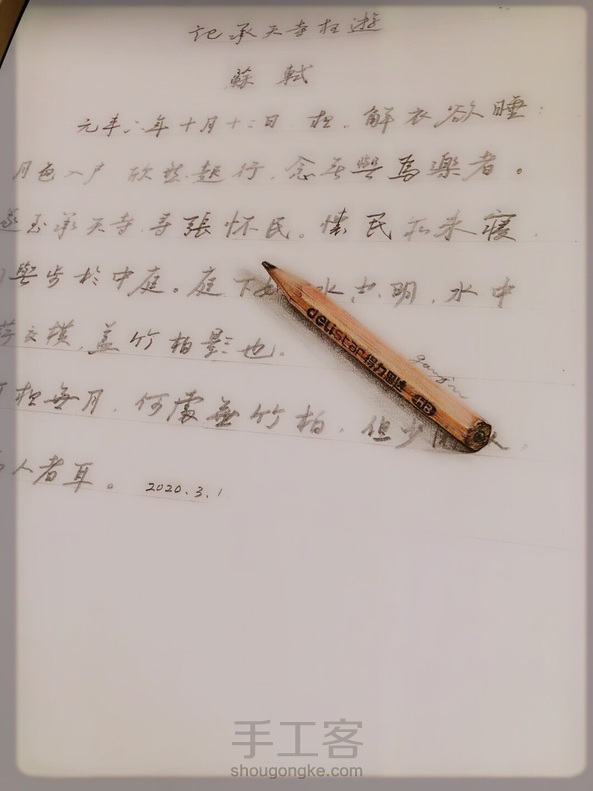 记承天寺夜遊
蘇軾
元丰六年十月十二日 夜,解衣欲睡;
月色入户 欣然起行,念無與為樂者。
遂至承天寺寻張怀民。懷民亦未寢,
與步於中庭。庭下 水空明,水中
荇交横,盖竹柏影也。
夜無月,何處無竹柏,但少人,
人者耳。 2020.3.1
delistar得力 HB
手工客
shougongke.com